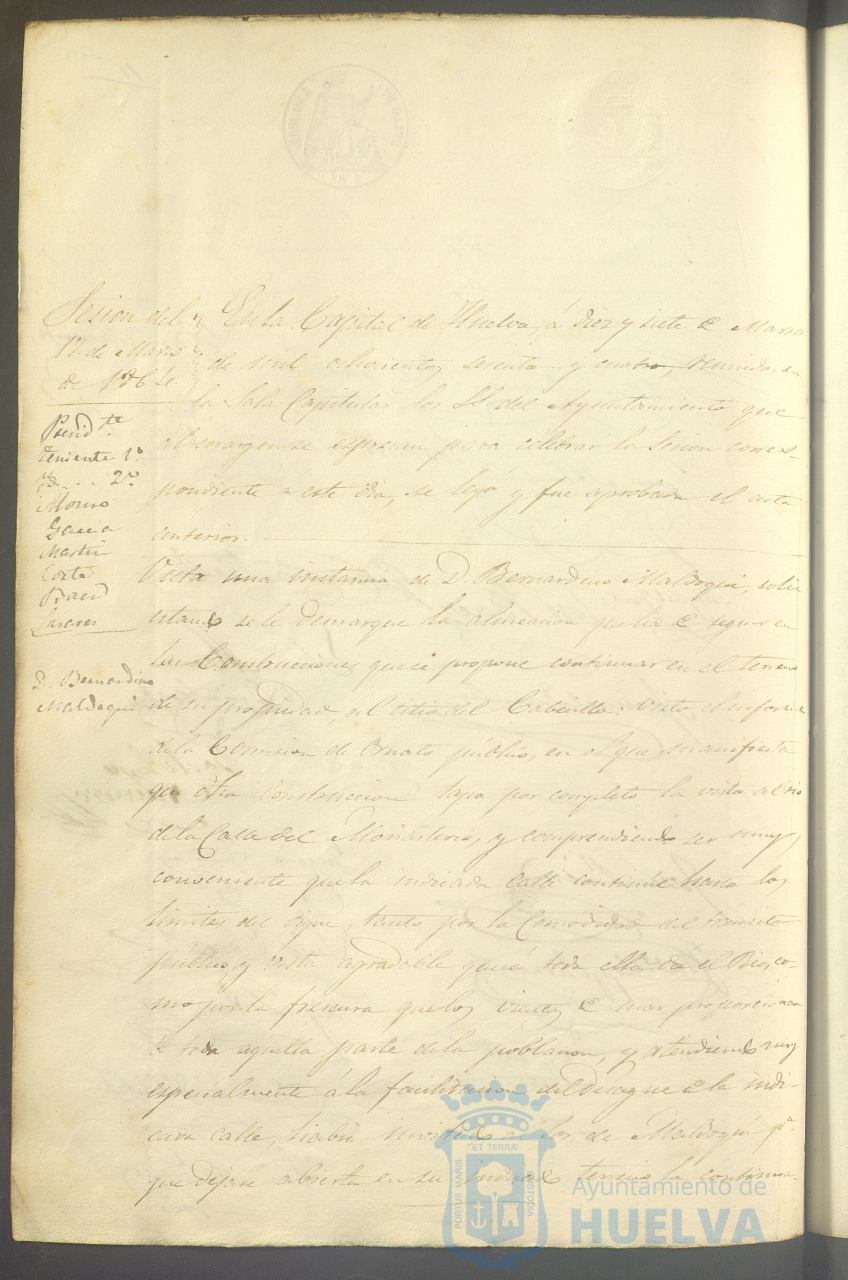 Sesion del
17 de Marzo
de 1864.
Presid.te
Teniente 1.º
Yd. . . 2.º
Alonso
Garcia
Martin
Corte
Baed
D. Bernardino
Maldoqui
En la Capital de Huelva, á diez y siete de Marzo
de mil ochocientos sesenta y cuatro, reunidos en
la Sala Capitular los SS. del Ayuntamiento que
al margen se espresan para celebrar la Sesion corres-
pondiente a este dia, se leyó y fue aprobada el acta
anterior.
Vista una instancia de D. Bernardino Maldoqui, solici
tando se le demarque la alineacion que ha de seguir en
las Construcciones que se propone continuar en el terreno
de su propiedad, al sitio del Cabecillo: Visto el informe
de la Comision de Ornato público, en el que manifiesta
que dha Construccion tapa por completo la vista al rio
de la Calle del Monasterio, y comprendiendo ser muy
conveniente que la indicada calle continúe hasta los
limites del dique, tanto por la Comodidad del transito
público y vista agradable que á toda ella dá el Rio, co-
mo por la frescura que los vientos de mar proporcionan
á toda aquella parte de la poblacion, y atendiendo muy
especialmente á la facilitacion del desague de la indi-
cada calle, habia invitado al Sor. de Maldoqui p.ª
que dejase abierta en su indicado terreno la continua-
PORTUS MARIS
ET TERRÆ
CUSTODIA
Ayuntamiento de
HUELVA